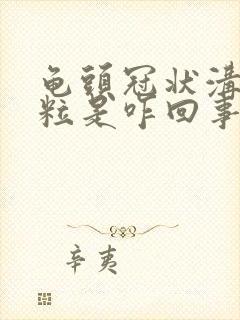 龟頭冠状溝
粒是咋回事
辛夷